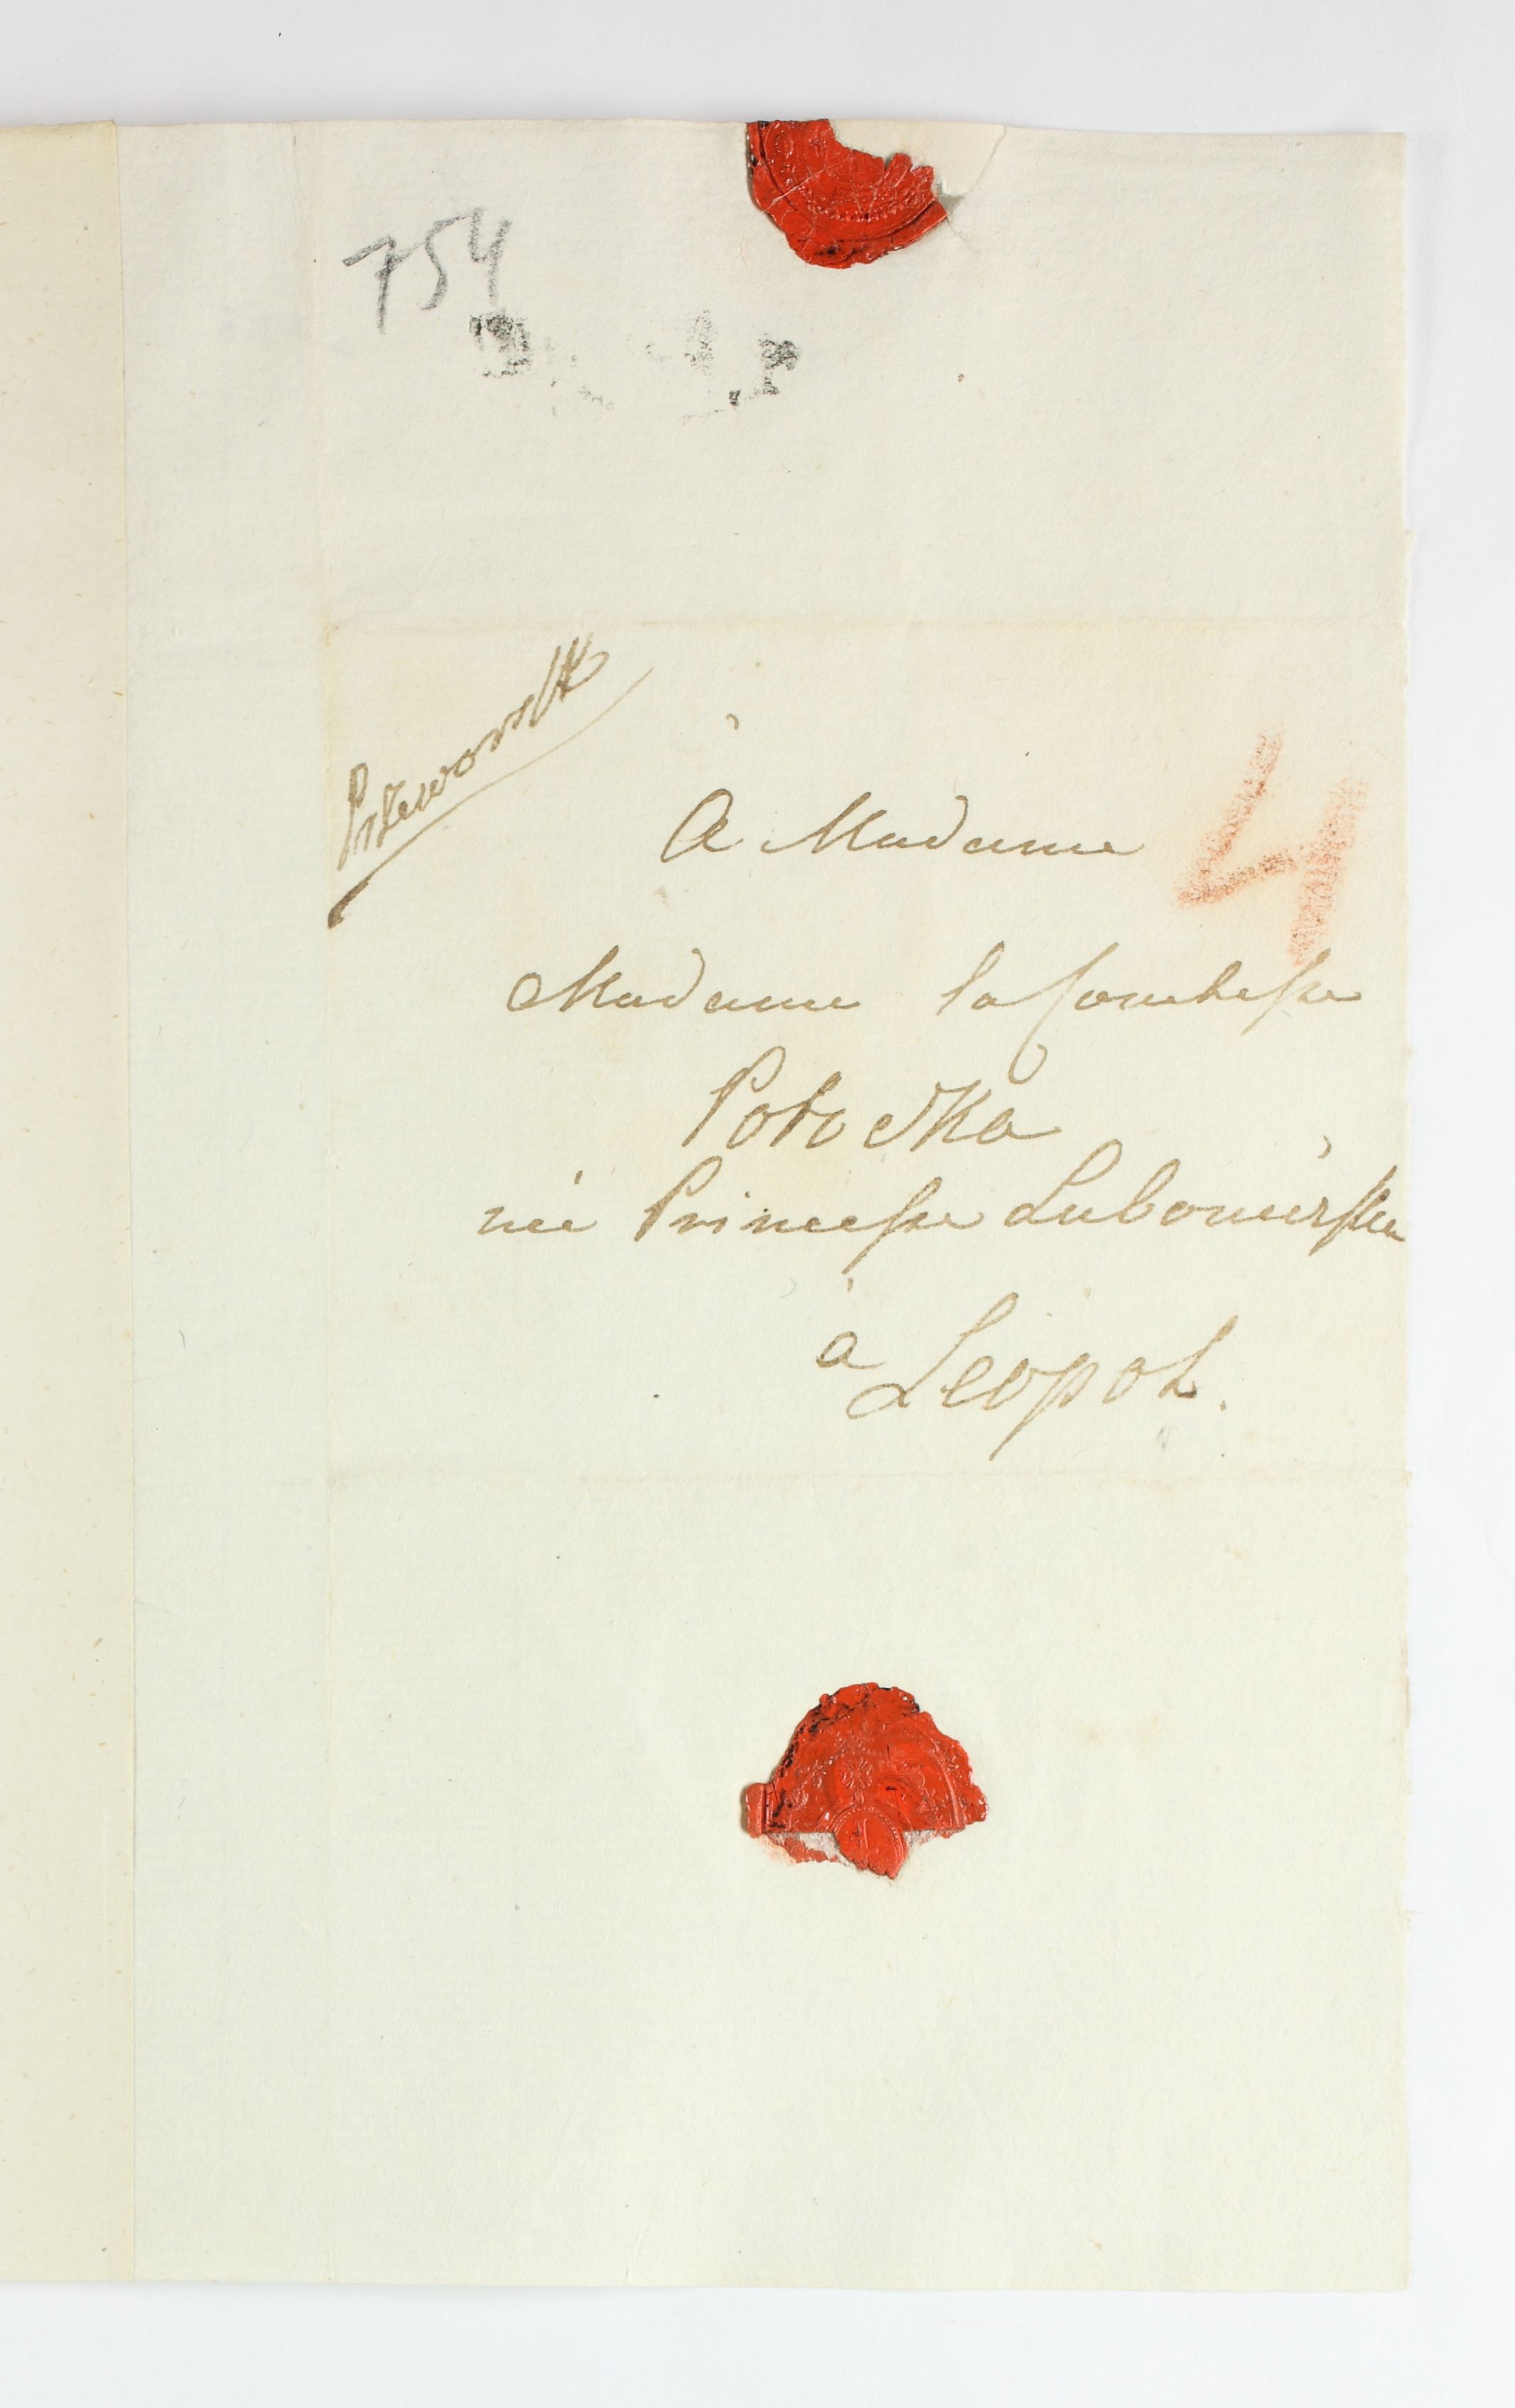 754
À Madame
4
Madame la Comtesse
Potocka
née Princesse Lubomirska
à Léopol.